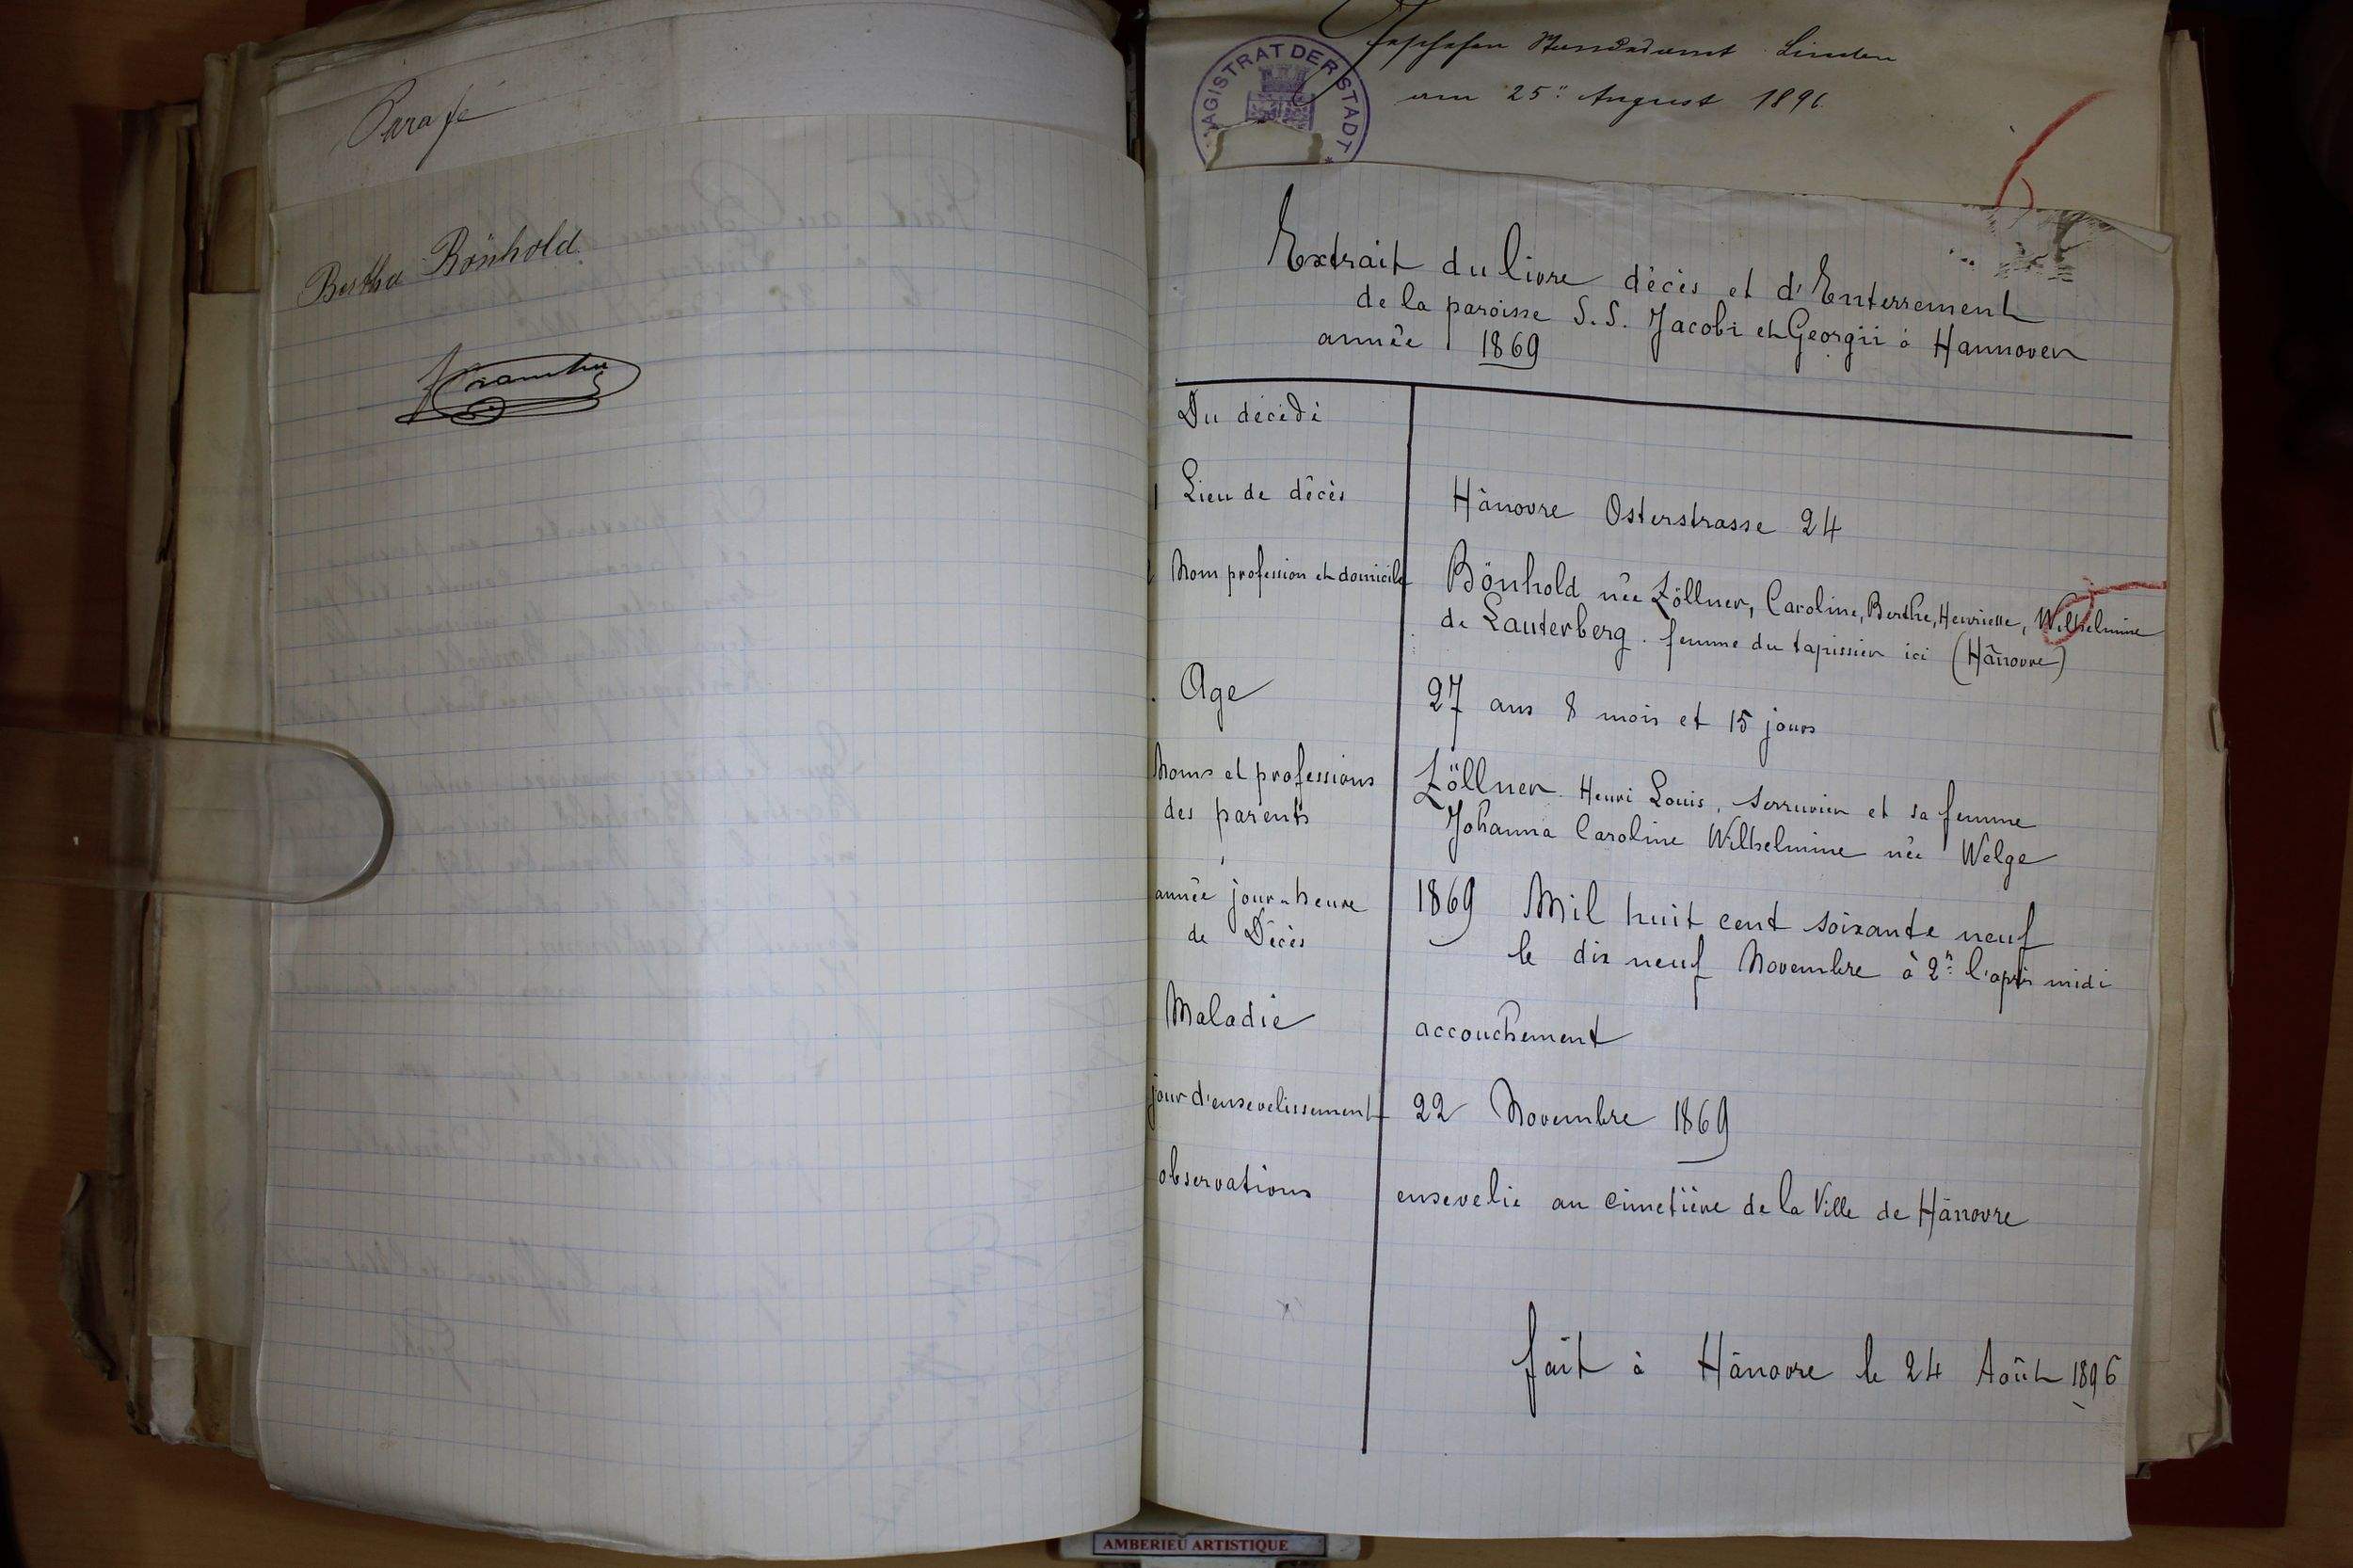 Parafé
Bertha Bönhold
Standesamt Linden
am 25ⁿ August 1896
MAGISTRAT DER STADT
Extrait du livre décès et d'Enterrement
de la paroisse S.S. Jacobi et Georgii à Hannover
année 1869
Du décédé
Lieu de décès
Hânovre Osterstrasse 24
Nom profession et domicile
Bönhold née Zöllner, Caroline, Berthe, Henriette, Wilhelmine
de Lauterberg. femme du tapissier ici (Hânovre)
Age
27 ans 8 mois et 15 jours
Noms et professions
des parents
Zöllner Henri Louis, serrurier et sa femme
Johanna Caroline Wilhelmine née Welge
année jour heure
de Décès
1869 Mil huit cent soixante neuf
le dix neuf Novembre à 2ʰ l'après midi
Maladie
accouchement
jour d'ensevelissement
22 Novembre 1869
observations
ensevelie au cimetière de la Ville de Hânovre
fait à Hânovre le 24 Août 1896
AMBERIEU ARTISTIQUE